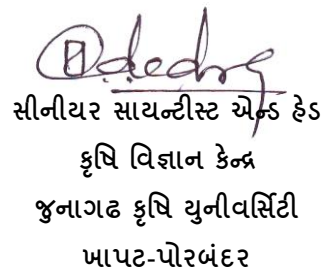 સીનીયર સાયન્ટીસ્ટ એન્ડ હેડ
કૃષિ વિજ્ઞાન કેન્દ્ર
જુનાગઢ કૃષિ યુનીવર્સિટી
ખાપટ-પોરબંદર